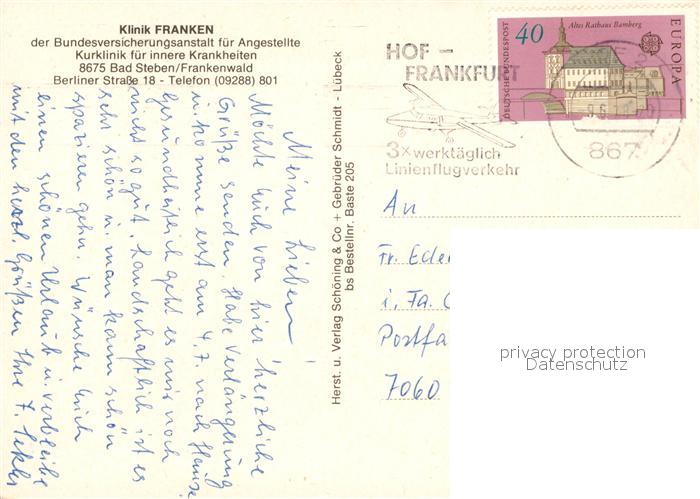 Klinik FRANKEN
der Bundesversicherungsanstalt für Angestellte
Kurklinik für innere Krankheiten
8675 Bad Steben/Frankenwald
Berliner Straße 18 - Telefon (09288) 801
Meine Lieben!
Möchte Euch von hier herzliche
Grüße senden. Habe Verlängerung
u. komme erst am 4.7. nach Hause
Gesundheitlich geht es mir noch
nicht so gut. Landschaftlich ist es
sehr schön u. man kann schön
spazieren gehn. Wünsche Euch
einen schönen Urlaub u. verbleibe
mit den herzl Grüßen Ihre
Herst. u. Verlag Schöning & Co + Gebrüder Schmidt - Lübeck
bs Bestellnr. Baste 205
HOF -
FRANKFURT
3x werktäglich
Linienflugverkehr
40
Altes Rathaus Bamberg
DEUTSCHE BUNDESPOST
EUROPA
867
An
Fr. Eder
i. Fa.
Postfa
7060
privacy protection
Datenschutz